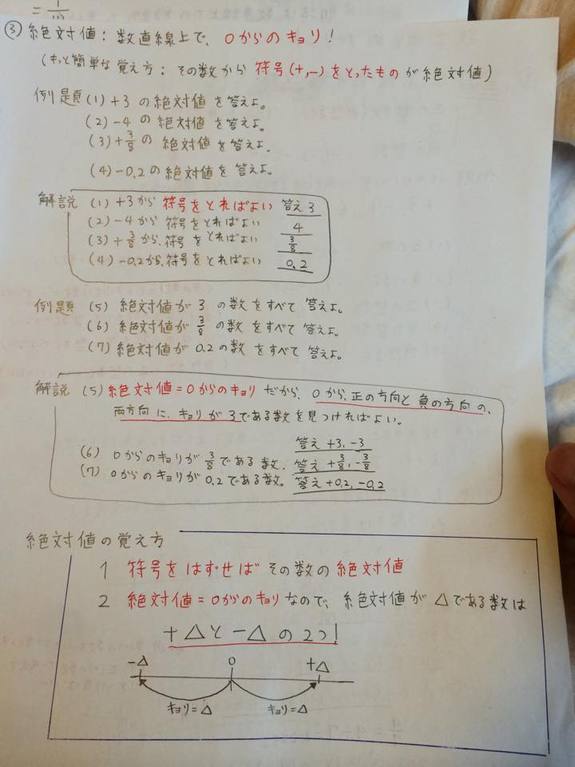 = 1/100
③ 絶対値：数直線上で、0からのキョリ！
(もっと簡単な覚え方：その数から 符号(+,-)をとったものが絶対値)
例題 (1) +3 の絶対値を答えよ。
(2) -4 の絶対値を答えよ。
(3) +3/8 の 絶対値を答えよ。
(4) -0.2 の絶対値を答えよ。
解説 (1) +3から 符号をとればよい 答え 3
(2) -4から 符号をとればよい 4
(3) +3/8から、符号をとればよい 3/8
(4) -0.2から、符号をとればよい 0.2
例題 (5) 絶対値が 3 の数をすべて答えよ。
(6) 絶対値が 3/8 の数をすべて答えよ。
(7) 絶対値が 0.2 の数をすべて答えよ。
解説 (5) 絶対値=0からのキョリ だから、0から、正の方向と負の方向の、
両方向に、キョリが3である数を見つければよい。
答え +3, -3
(6) 0からのキョリが 3/8 である数、 答え +3/8, -3/8
(7) 0からのキョリが0.2である数。 答え +0.2, -0.2
絶対値の覚え方
1 符号をはずせば その数の絶対値
2 絶対値=0からのキョリ なので、絶対値が △である数は
+△と-△の2つ!
-△ 0 +△
キョリ=△ キョリ=△